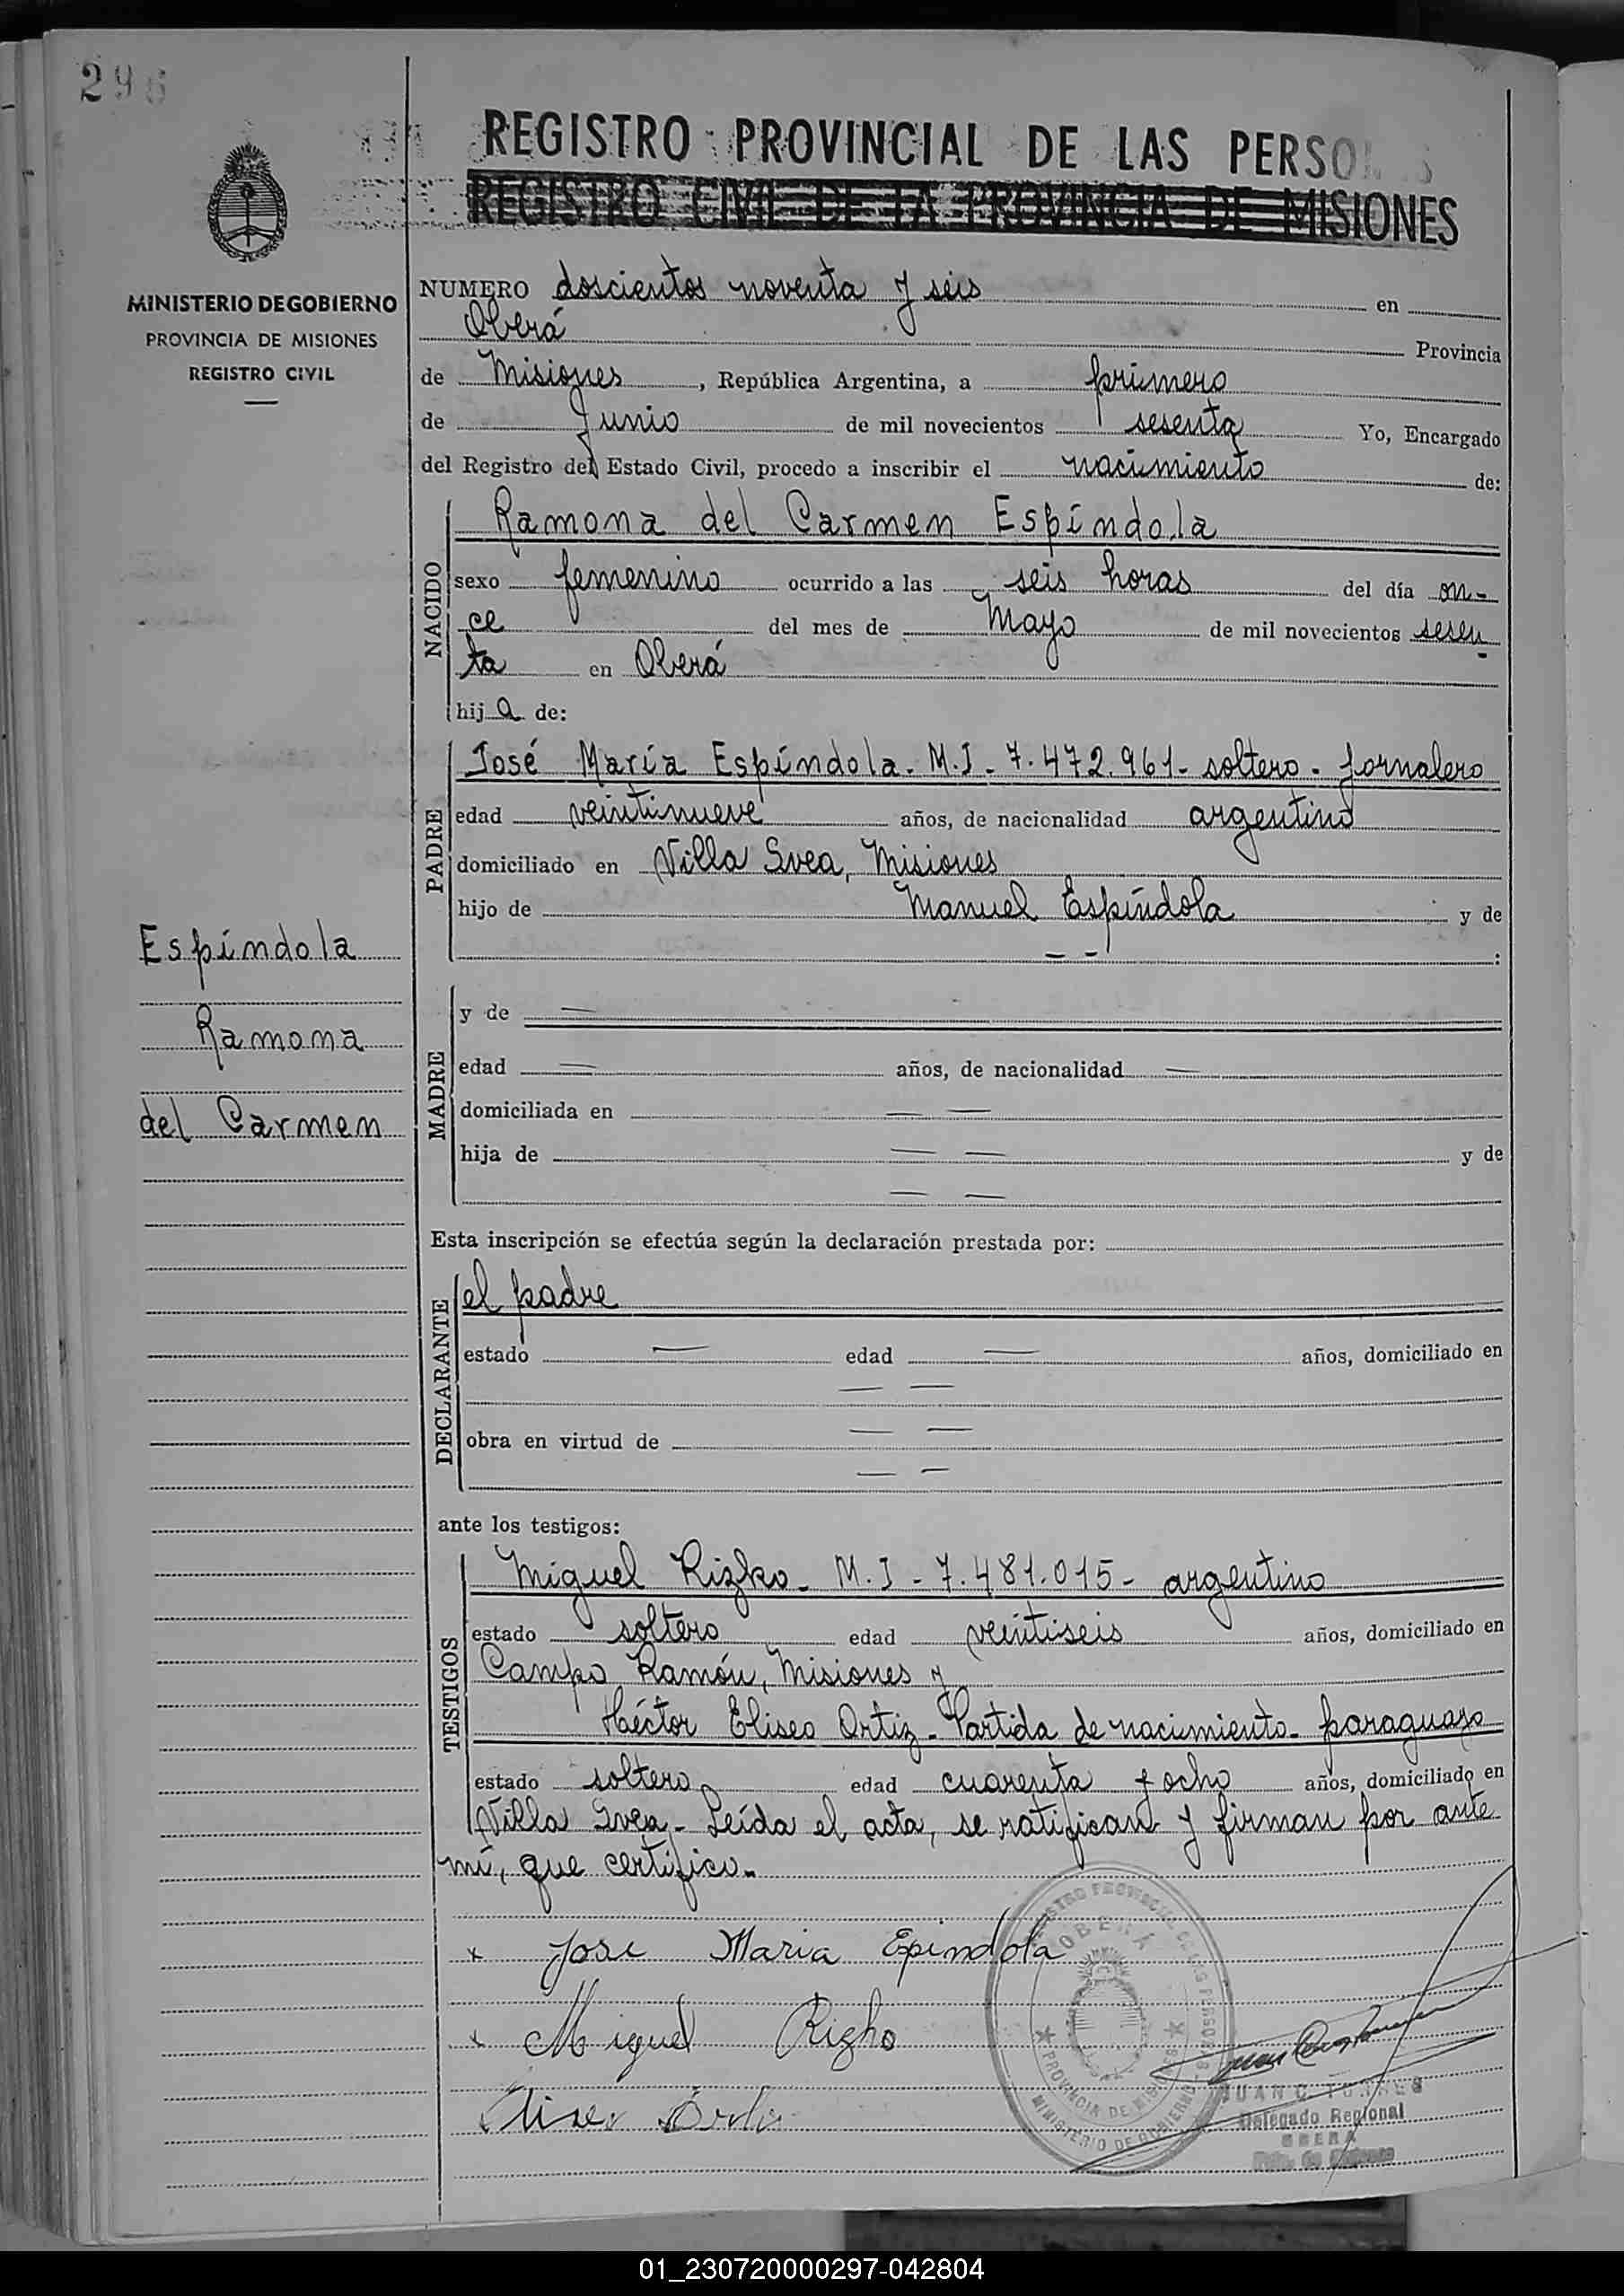 296
REGISTRO PROVINCIAL DE LAS PERSONAS
REGISTRO CIVIL DE LA PROVINCIA DE MISIONES
MINISTERIO DE GOBIERNO
PROVINCIA DE MISIONES
REGISTRO CIVIL
NUMERO doscientos noventa y seis en
Oberá Provincia
de Misiones, República Argentina, a primero
de Junio de mil novecientos sesenta Yo, Encargado
del Registro del Estado Civil, procedo a inscribir el nacimiento de:
NACIDO
Ramona del Carmen Espíndola
sexo femenino ocurrido a las seis horas del día on-
ce del mes de Mayo de mil novecientos sesen
ta en Oberá
hija de:
PADRE
José María Espíndola. M.I. 7.472.961- soltero. Jornalero
edad veintinueve años, de nacionalidad argentino
domiciliado en Villa Svea, Misiones
hijo de Manuel Espíndola y de
— — :
Espíndola
Ramona
del Carmen
MADRE
y de —
edad — años, de nacionalidad —
domiciliada en — —
hija de — — y de
— —
Esta inscripción se efectúa según la declaración prestada por:
DECLARANTE
el padre
estado — edad — años, domiciliado en
— —
obra en virtud de — —
— —
ante los testigos:
TESTIGOS
Miguel Rizko. M.I - 7.481.015- argentino
estado soltero edad veintiseis años, domiciliado en
Campo Ramón, Misiones y
Héctor Eliseo Ortiz. Partida de nacimiento. paraguayo
estado soltero edad cuarenta y ocho años, domiciliado en
Villa Svea. Leída el acta, se ratifican y firman por ante
mí, que certifico.
x Jose Maria Epindola
x Miguel Rizho
Eliseo Ortiz
REGISTRO PROVINCIAL DE LAS PERSONAS
OBERÁ
PROVINCIA DE MISIONES
MINISTERIO DE GOBIERNO
JUAN C. TORRES
Delegado Regional
OBERA
01_230720000297-042804